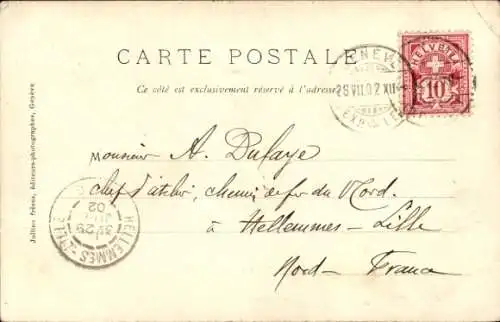 CARTE POSTALE
Ce côté est exclusivement réservé à l'adresse
HELVETIA
10
GENEV
25 VII.02 XII
EXP. LE
Monsieur A. Dufaye
chef d'atelier, chemin de fer du Nord.
à Hellemmes - Lille
Nord - France
HELLEMMES-LILLE
3E 29
02
Jullien frères, éditeurs-photographes, Genève